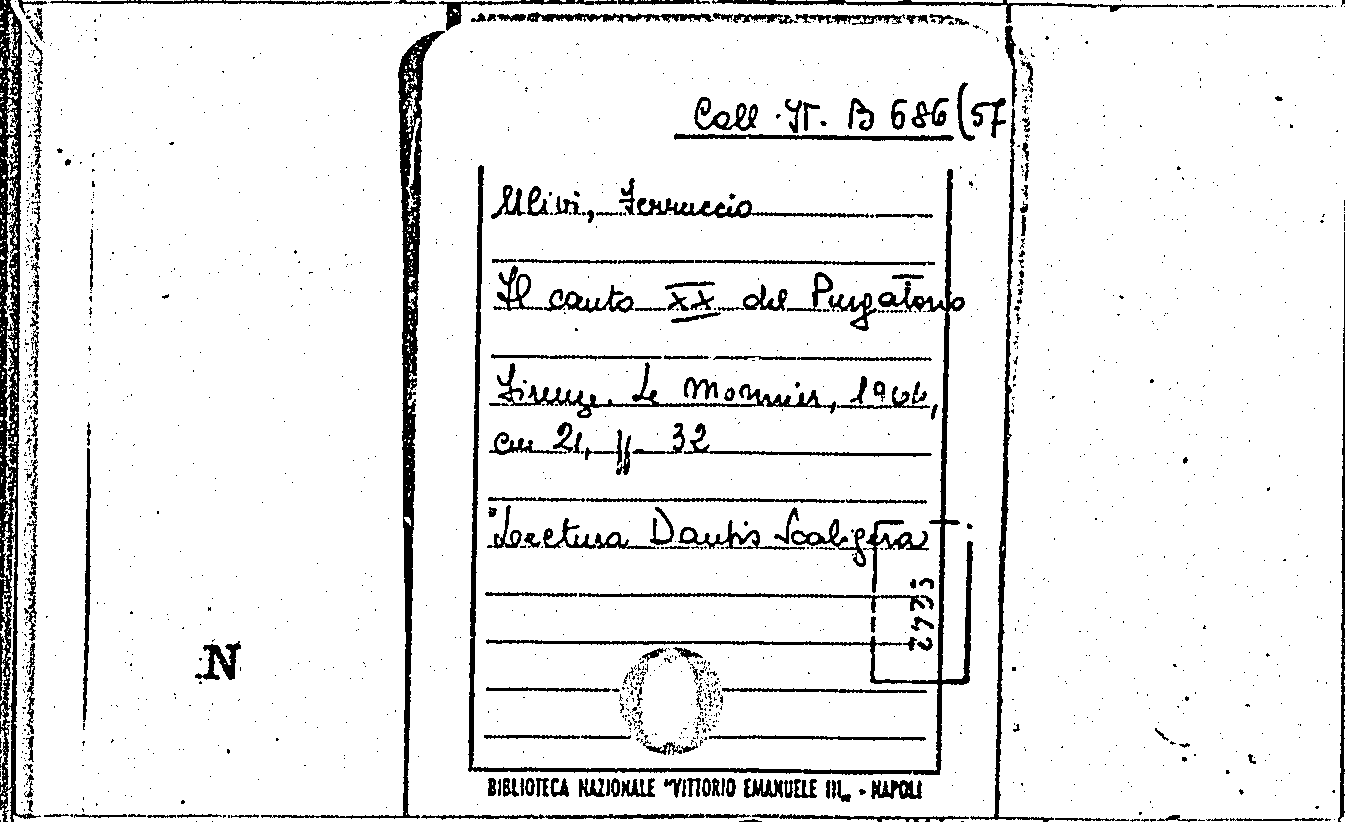 Coll. It. B 686(57
Ulivi, Ferruccio
Il canto XX del Purgatorio
Firenze. Le Monnier, 1964,
cm 21, pp. 32
"Lectura Dantis Scaligera
N
BIBLIOTECA NAZIONALE "VITTORIO EMANUELE III„ - NAPOLI